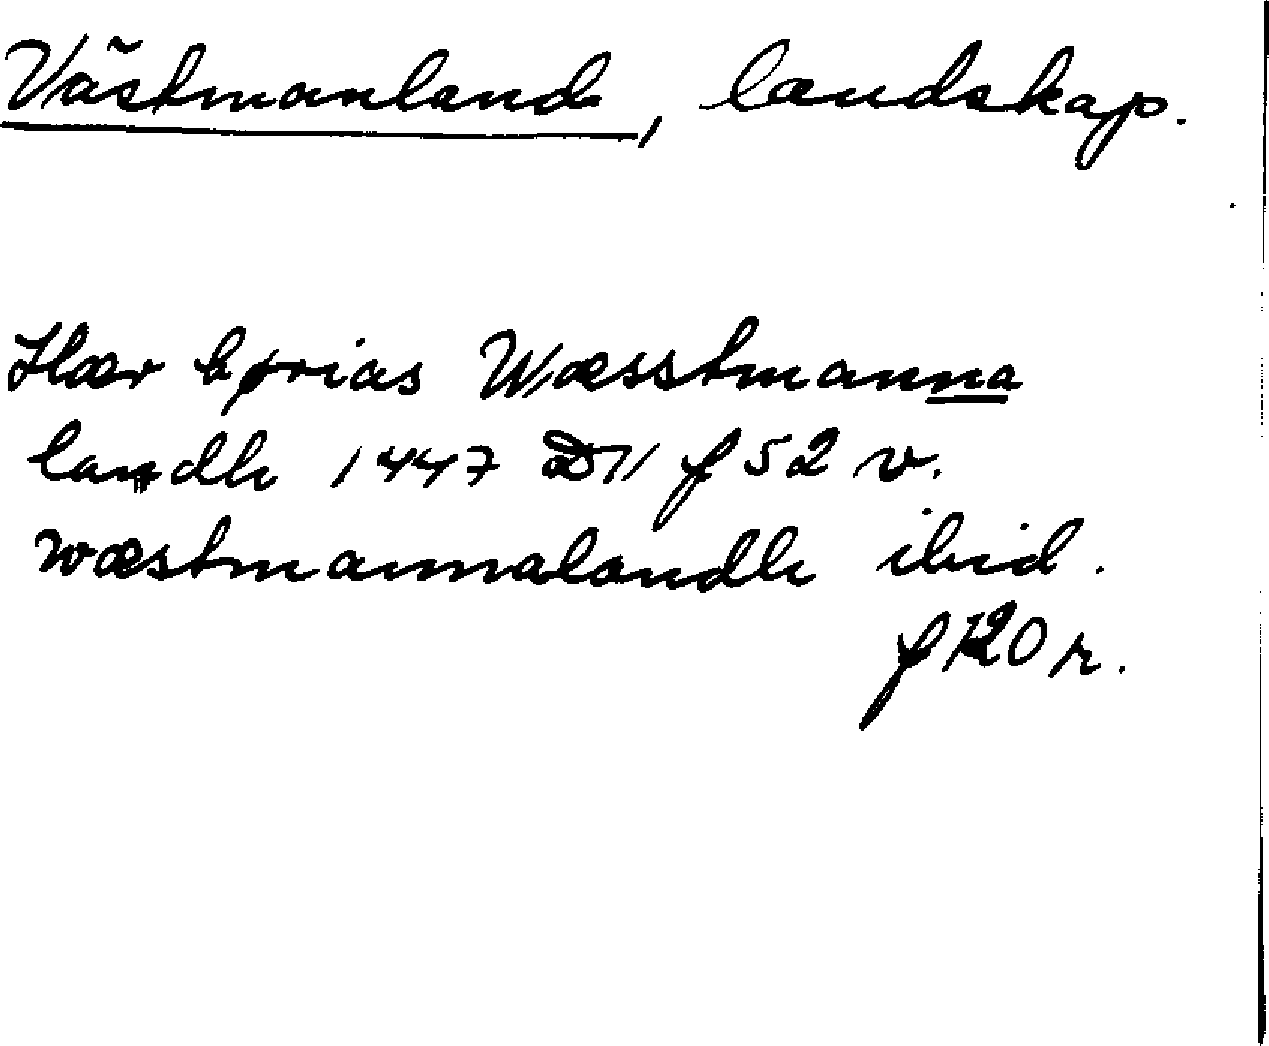 Västmanland, landskap.
Hær børias Wæsstmanna
landh 1447 D 11 f 52 v.
wæstmannalandh ibid.
f 120 r.